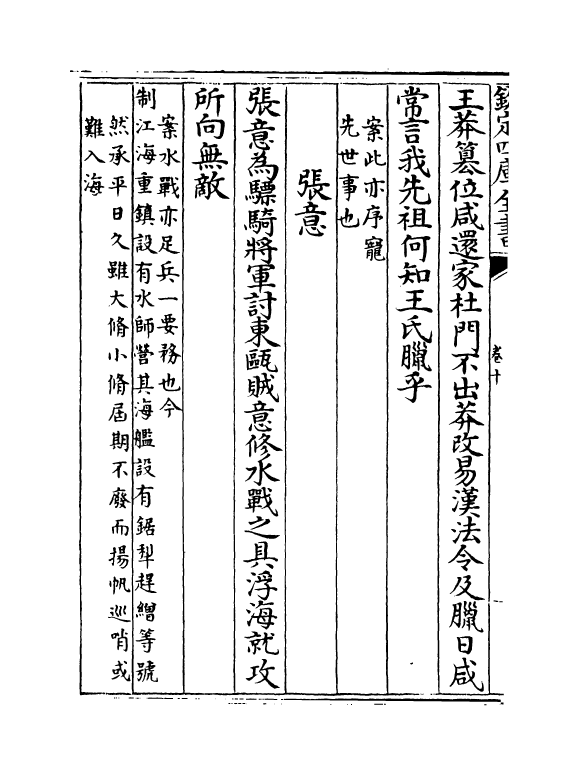 欽定四庫全書
卷十
王莽篡位咸還家杜門不出莽改易漢法令及臘日咸
常言我先祖何知王氏臘乎
案此亦序寵
先世事也
張意
張意為驃騎將軍討東甌賊意修水戰之具浮海就攻
所向無敵
案水戰亦足兵一要務也今
制江海重鎮設有水師營其海艦設有鋸犁趕繒等號
然承平日久雖大脩小脩屆期不廢而揚帆巡哨或
難入海